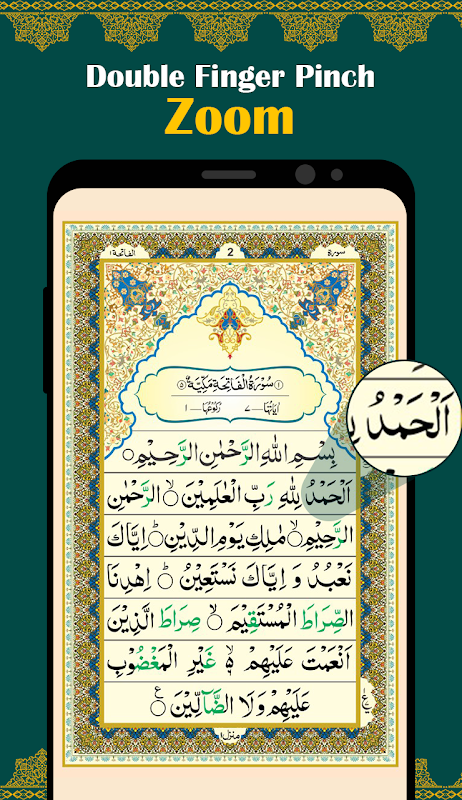 Double Finger Pinch
Zoom
سورة 2 الفاتحة ١
١ سُوْرَةُ الْفَاتِحَةِ مَكِّيَّةٌ ٥
اٰيَاتُهَا ٧ رُكُوْعُهَا ١
بِسْمِ اللّٰهِ الرَّحْمٰنِ الرَّحِيْمِ
اَلْحَمْدُ لِلّٰهِ رَبِّ الْعٰلَمِيْنَ ۙ الرَّحْمٰنِ
الرَّحِيْمِ ۙ مٰلِكِ يَوْمِ الدِّيْنِ ؕ اِيَّاكَ
نَعْبُدُ وَ اِيَّاكَ نَسْتَعِيْنُ ؕ اِهْدِنَا
الصِّرَاطَ الْمُسْتَقِيْمَ ۙ صِرَاطَ الَّذِيْنَ
اَنْعَمْتَ عَلَيْهِمْ ۙ غَيْرِ الْمَغْضُوْبِ
عَلَيْهِمْ وَلَا الضَّآلِّيْنَ
منزل ١
اَلْحَمْدُ